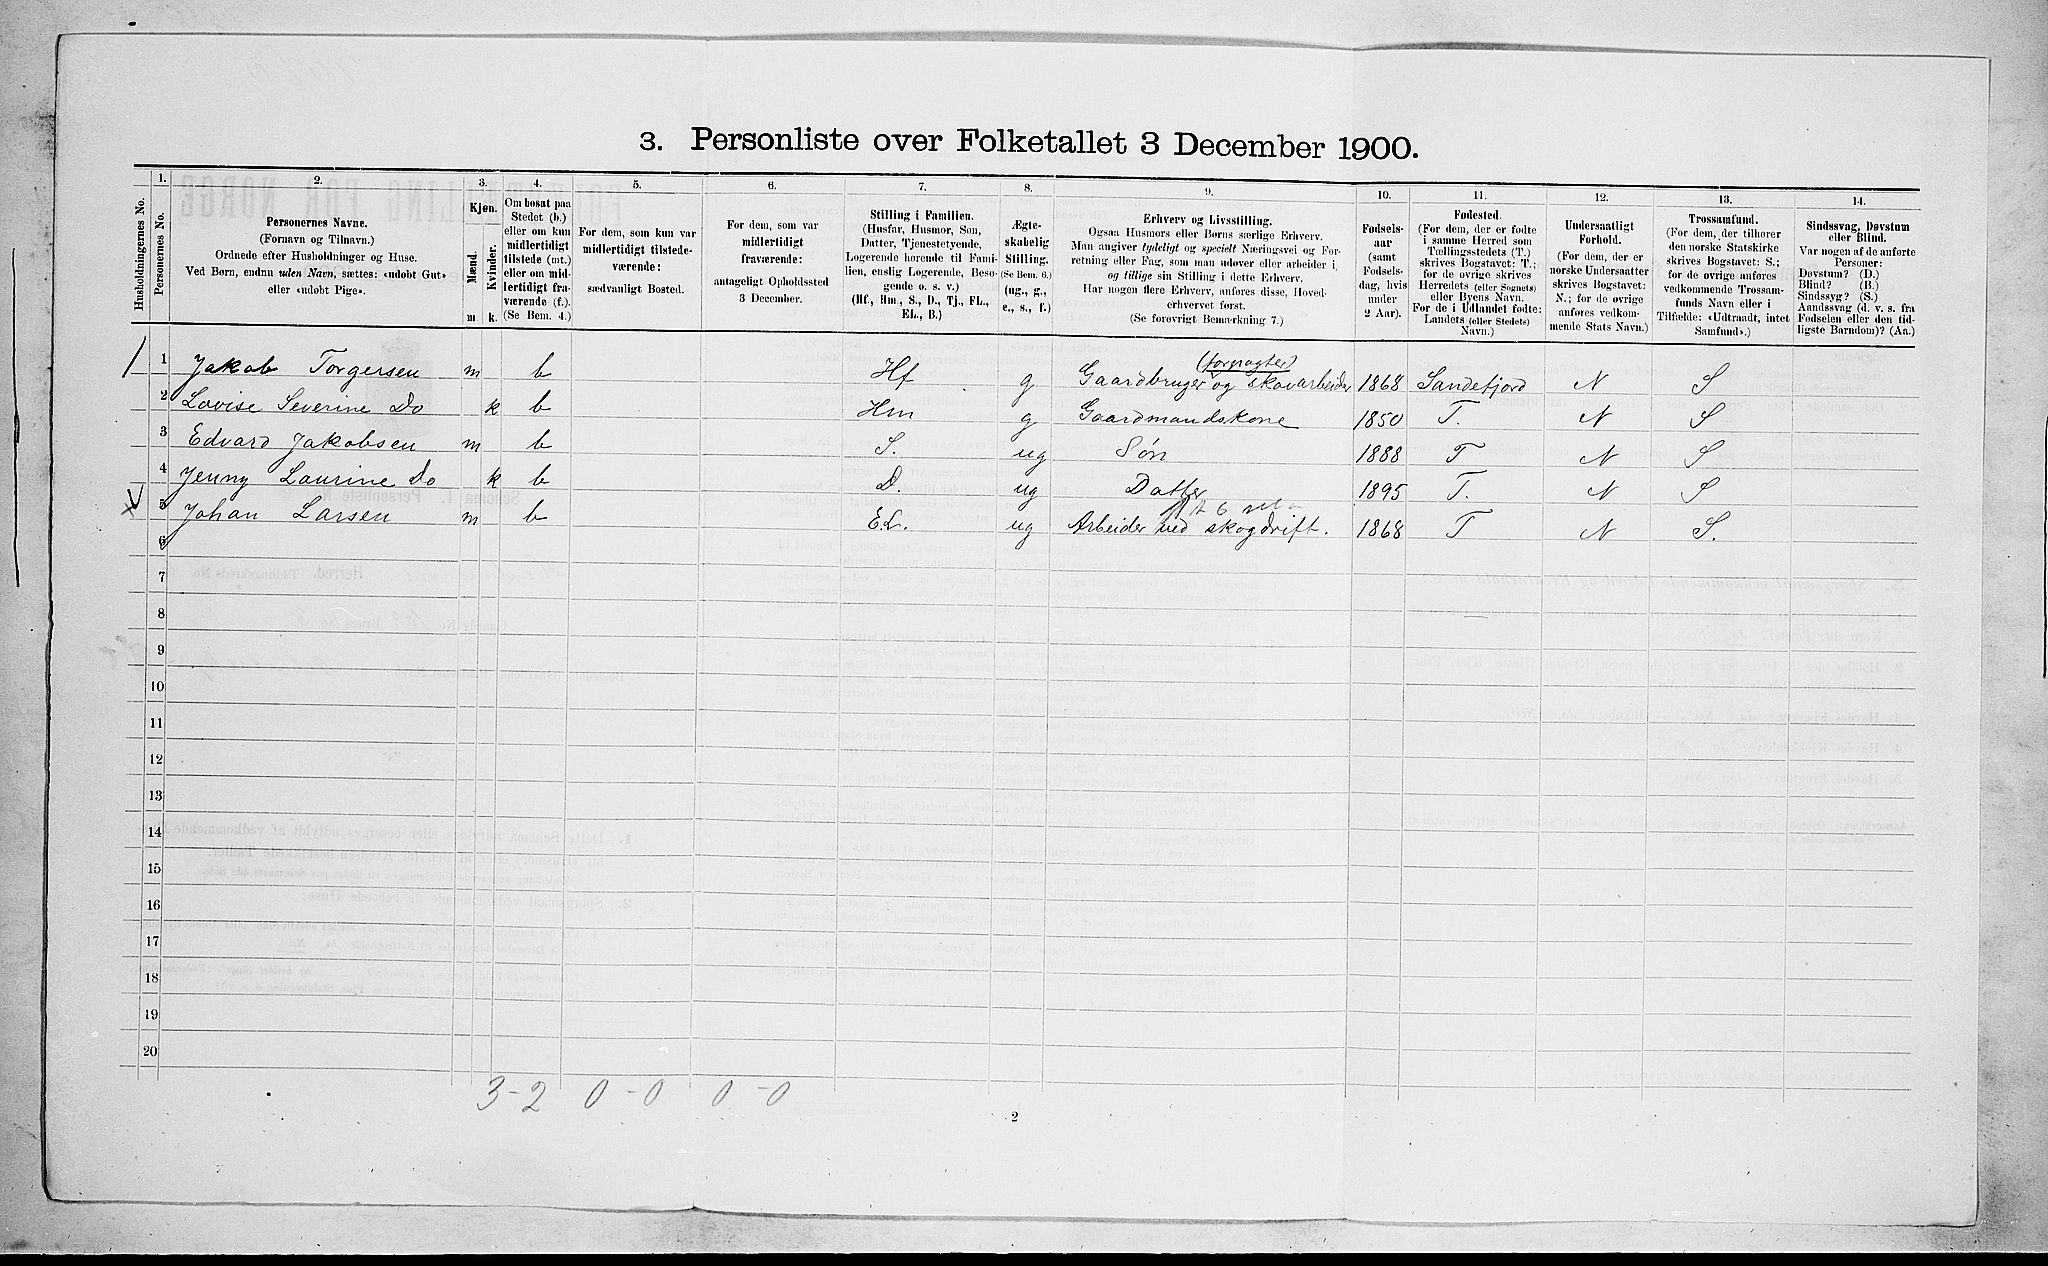 3. Personliste over Folketallet 3 December 1900.
1. 2. 3. 4. 5. 6. 7. 8. 9. 10. 11. 12. 13. 14.
Husholdningernes No.
Personernes No.
Personernes Navne.
(Fornavn og Tilnavn.)
Ordnede efter Husholdninger og Huse.
Ved Børn, endnu uden Navn, sættes: «udøbt Gut»
eller «udøbt Pige».
Kjøn.
Mænd. Kvinder.
m k.
Om bosat paa
Stedet (b.)
eller om kun
midlertidigt
tilstede (mt.)
eller om mid-
lertidigt fra-
værende (f.).
(Se Bem. 4.)
For dem, som kun var
midlertidigt tilstede-
værende:
sædvanligt Bosted.
For dem, som var
midlertidigt
fraværende:
antageligt Opholdssted
3 December.
Stilling i Familien.
(Husfar, Husmor, Søn,
Datter, Tjenestetyende,
Logerende hørende til Fami-
lien, enslig Logerende, Besø-
gende o. s. v.)
(Hf., Hm., S., D., Tj., FL.,
EL., B.)
Ægte-
skabelig
Stilling.
(Se Bem. 6.)
(ug., g.,
e., s., f.)
Erhverv og Livsstilling.
Ogsaa Husmors eller Børns særlige Erhverv.
Man angiver tydeligt og specielt Næringsvei og For-
retning eller Fag, som man udøver eller arbeider i,
og tillige sin Stilling i dette Erhverv.
Har nogen flere Erhverv, anføres disse, Hoved-
erhvervet først.
(Se forøvrigt Bemærkning 7.)
Fødsels-
aar
(samt
Fødsels-
dag, hvis
under
2 Aar).
Fødested.
(For dem, der er fødte
i samme Herred som
Tællingsstedets (T.)
skrives Bogstavet: T.;
for de øvrige skrives
Herredets (eller Sognets)
eller Byens Navn.
For de i Udlandet fødte:
Landets (eller Stedets)
Navn.)
Undersaatligt
Forhold.
(For dem, der er
norske Undersaatter
skrives Bogstavet:
N.; for de øvrige
anføres vedkom-
mende Stats Navn.)
Trossamfund.
(For dem, der tilhører
den norske Statskirke
skrives Bogstavet: S.;
for de øvrige anføres
vedkommende Trossam-
funds Navn eller i
Tilfælde: «Udtraadt, intet
Samfund».)
Sindssvag, Døvstum
eller Blind.
Var nogen af de anførte
Personer:
Døvstum? (D.)
Blind? (B.)
Sindssyg? (S.)
Aandssvag (d. v. s. fra
Fødselen eller den tid-
ligste Barndom)? (Aa.)
(forpagter)
1 Jakob Torgersen m b Hf g Gaardbruger og skovarbeider 1868 Sandefjord N S
2 Lovise Severine Do k b Hm g Gaardmandskone 1850 T. N S
3 Edvard Jakobsen m b S. ug Søn 1888 T N S
4 Jenny Laurine Do k b D. ug Datter 1895 T. N S
5 Johan Larsen m b EL. ug Arbeider ved skogdrift. 1868 T N S.
6
7
8
9
10
11
12
13
14
15
16
17
18
19
20
3-2 0-0 0-0
2